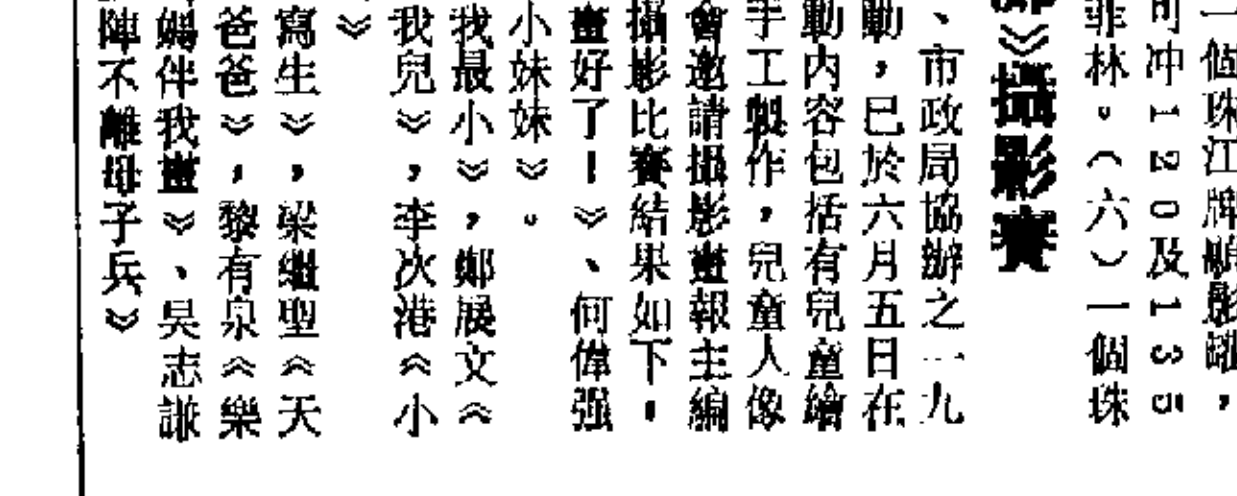 一個珠江牌顯影罐，
可冲120及135
菲林。（六）一個珠
》攝影賽
、市政局協辦之一九
動，已於六月五日在
動內容包括有兒童繪
手工製作，兒童人像
會邀請攝影畫報主編
攝影比賽結果如下：
畫好了！》、何偉强
小妹妹》。
我最小》，鄭展文《
我兒》，李次港《小
》
寫生》，梁繼聖《天
爸爸》，黎有泉《樂
媽伴我畫》、吳志謙
陣不離母子兵》